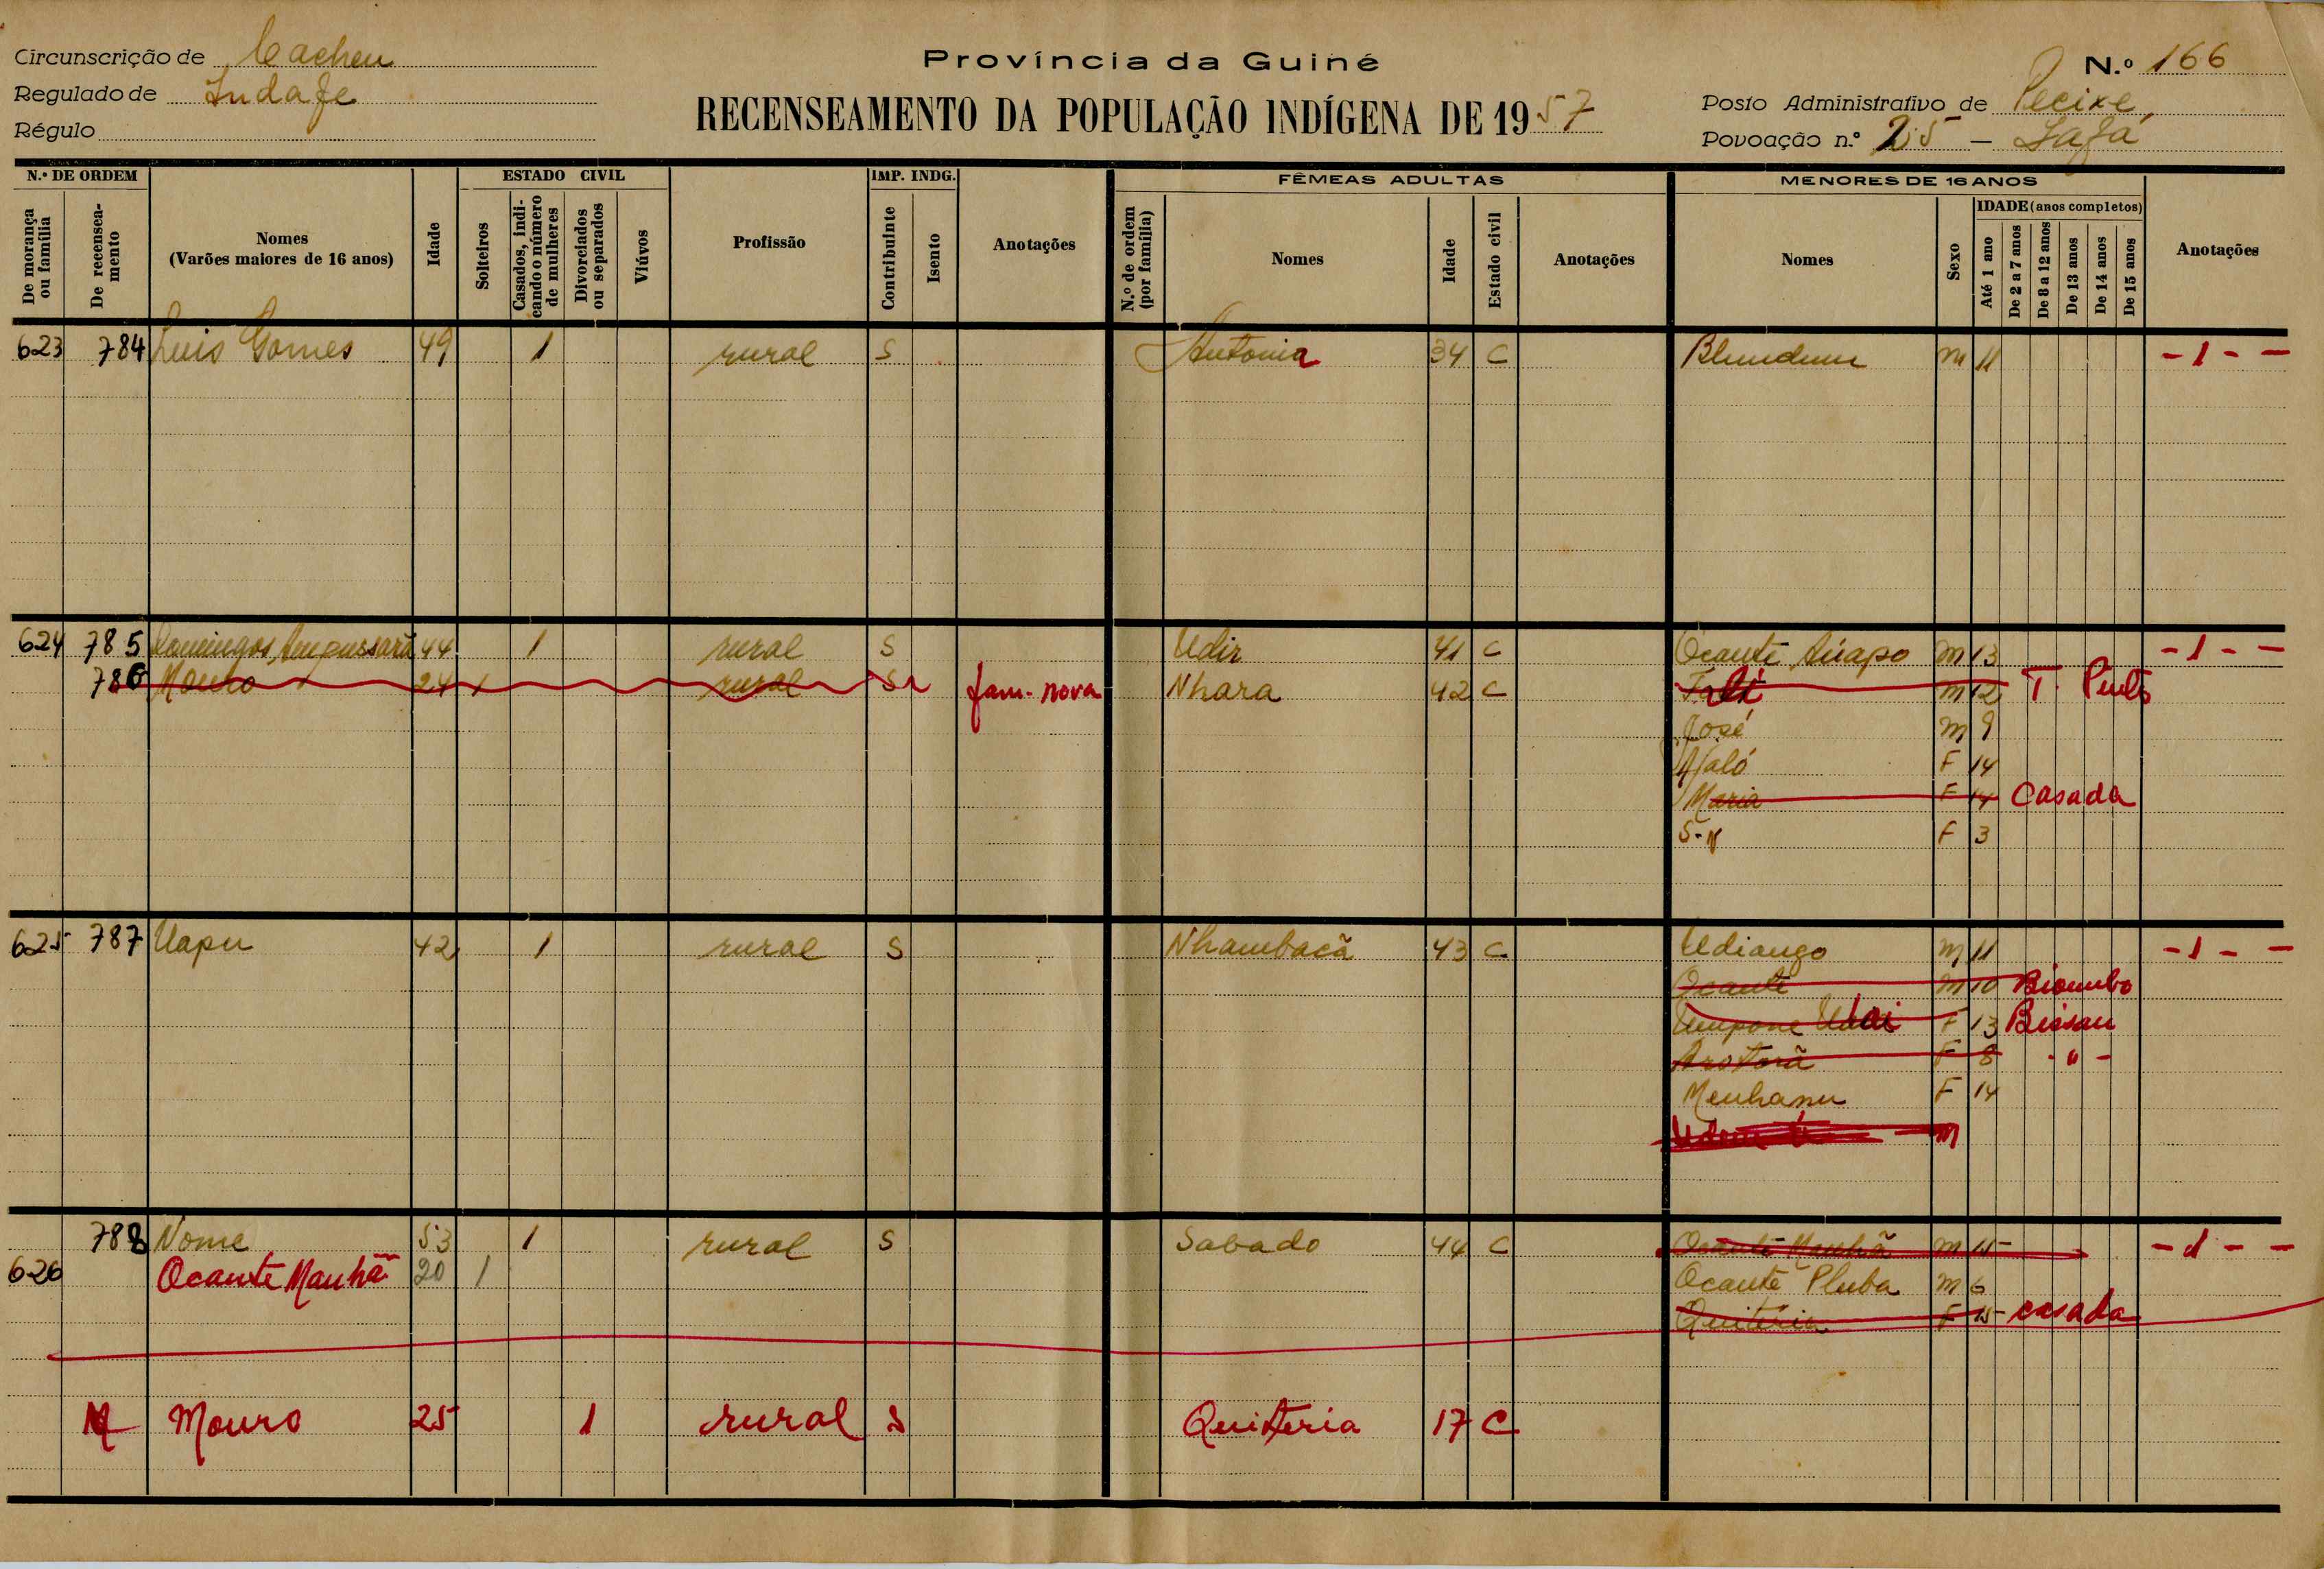 Circunscrição de Cacheu
Regulado de Indafe
Régulo
Província da Guiné
RECENSEAMENTO DA POPULAÇÃO INDÍGENA DE 1957
N.º 166
Posto Administrativo de Pecixe
Povoação n.º 25 —
N.º DE ORDEM
De morança ou família
De recenseamento
Nomes
(Varões maiores de 16 anos)
Idade
ESTADO CIVIL
Solteiros
Casados, indicando o número de mulheres
Divorciados ou separados
Viúvos
Profissão
IMP. INDG.
Contribuinte
Isento
Anotações
FÊMEAS ADULTAS
N.º de ordem (por família)
Nomes
Idade
Estado civil
Anotações
MENORES DE 16 ANOS
Nomes
Sexo
IDADE (anos completos)
Até 1 ano
De 2 a 7 anos
De 8 a 12 anos
De 13 anos
De 14 anos
De 15 anos
Anotações
623 784 Luis Gomes 49 1 rural S Antonia 34 C Blundum m 11 - 1 - -
624 785 Domingos 44 1 rural S Udir 41 C Ocante m 13 - 1 - -
786 Mouro 24 1 rural S fam. nova Nhara 42 C m 12 T.
José m 9
Njaló F 14
Maria F 14 Casada
S-N F 3
625 787 Uapu 42 1 rural S Nhambacã 43 C Udiango m 11 - 1 - -
Ocante m 10 Biombo
F 13 Bissau
F 8 - " -
Menhanu F 14
m
788 Nome 53 1 rural S Sabado 44 C Ocante Manhã m 15 - 1 - -
626 Ocante Manhã 20 1 Ocante Pluba m 6
Quiteria F 15 casada
M Mouro 25 1 rural S Quiteria 17 C